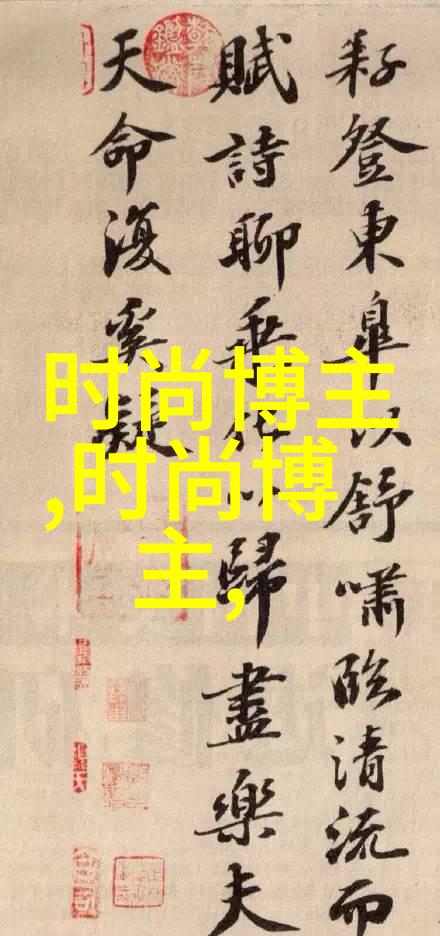 耔登東皐以舒嘯臨清流而
賦詩聊乗化以歸盡樂夫
天命復奚疑
时尚博主
,时尚博
主,